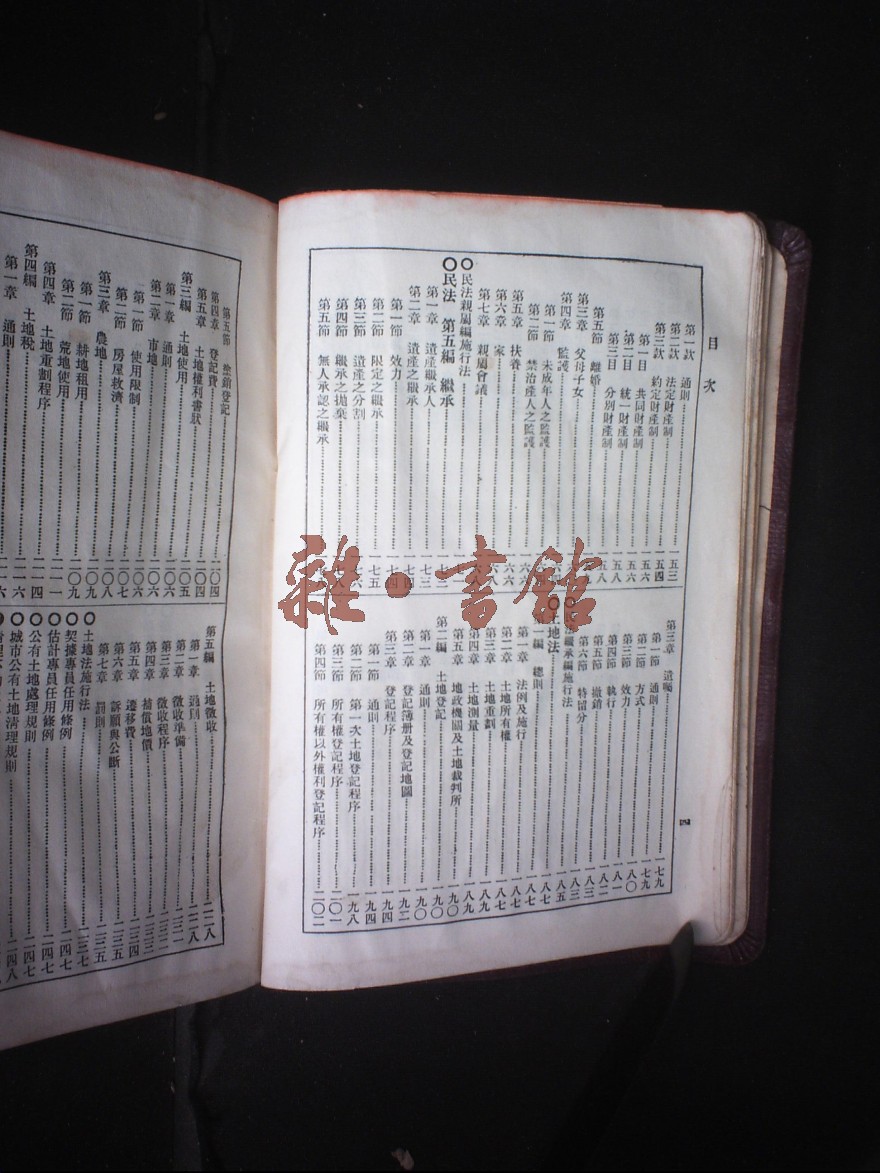 目次
四
第一款 通則 五三
第二款 法定財產制 五四
第三款 約定財產制
第一目 共同財產制 五六
第二目 統一財產制 五八
第三目 分別財產制
第五節 離婚
第三章 父母子女
第四章 監護
第一節 未成年人之監護
第二節 禁治產人之監護
第六章 家
第五章 扶養
第七章 親屬會議
○民法親屬編施行法
○民法 第五編 繼承
第一章 遺產繼承人
第二章 遺產之繼承
第一節 效力
第二節 限定之繼承
第三節 遺產之分割
第四節 繼承之拋棄
第五節 無人承認之繼承
第三章 遺囑 一七九
第一節 通則 一七九
第二節 方式 一八〇
第三節 效力 一八一
第四節 執行 一八二
第五節 撤銷 一八三
第六節 特留分 一八三
繼承編施行法 一八五
○土地法 一八七
第一編 總則 一八七
第一章 法例及施行 一八七
第二章 土地所有權 一八七
第三章 土地重劃 一八九
第四章 土地測量 一八九
第五章 地政機關及土地裁判所 一九〇
第二編 土地登記 一九〇
第一章 通則 一九〇
第二章 登記簿册及登記地圖 一九二
第三章 登記程序 一九四
第一節 通則 一九四
第二節 第一次土地登記程序 一九八
第三節 所有權登記程序 二〇一
第四節 所有權以外權利登記程序 二〇二
第五節 塗銷登記 二〇四
第四章 登記費 二〇四
第五章 土地權利書狀 二〇四
第三編 土地使用 二〇五
第一章 通則 二〇六
第二章 市地 二〇六
第一節 使用限制 二〇六
第二節 房屋救濟 二〇七
第三章 農地 二〇八
第一節 耕地租用 二〇九
第二節 荒地使用
第四章 土地重劃程序
第四編 土地稅
第一章 通則
第五編 土地徵收 二二八
第一章 通則 二二八
第二章 徵收準備
第三章 徵收程序
第四章 補償地價
第五章 遷移費
第六章 訴願與公斷
第七章 罰則
○土地法施行法
○契據專員任用條例
○估計專員任用條例
○公有土地處理規則
○城市公有土地清理規則
雜·書館